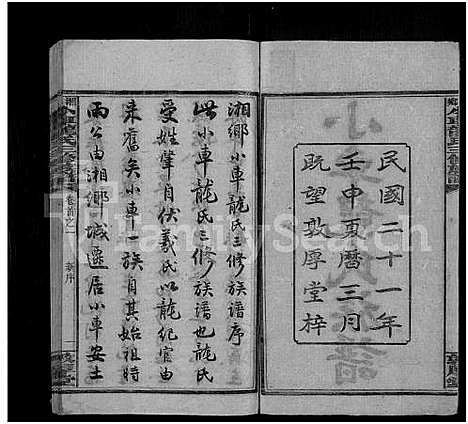 民國二十一年
壬申夏曆三月
既望敦厚堂梓
湘鄉小車龍氏三修族譜序
此小車龍氏三修族譜也龍氏
受姓肇自伏羲氏以龍紀官由
來舊矣小車一族自其始祖時
雨公由湘鄉城遷居小車安土
卷首之一
FamilySearch